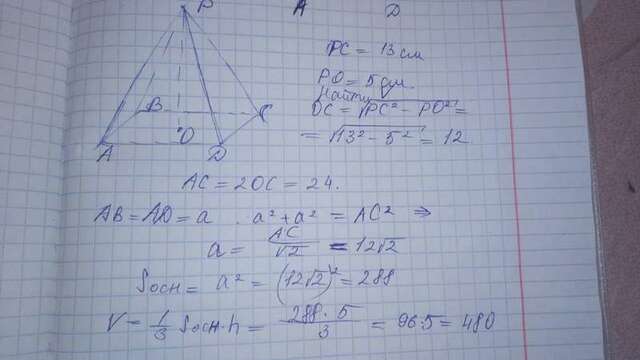 P A D
PC = 13 см
PO = 5 см.
Найти
OC = √PC² - PO² =
= √13² - 5² = 12
B C
A O D
AC = 2OC = 24.
AB = AD = a . a² + a² = AC² ⇒
a = AC/√2 = 12√2
Sосн = a² = (12√2)² = 288
V = 1/3 Sосн · h = 288 · 5/3 = 96·5 = 480